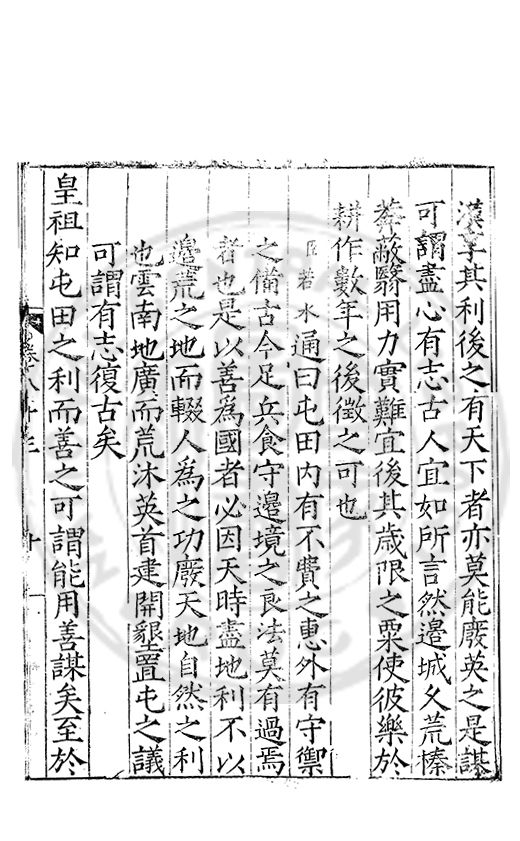 漢享其利後之有天下者亦莫能廢英之是謀
可謂盡心有志古人宜如所言然邊城久荒榛
莽蔽翳用力實難宜後其歲限之粟使彼樂於
耕作數年之後徴之可也
臣若水通曰屯田内有不費之惠外有守禦
之備古今足兵食守邊境之良法莫有過焉
者也是以善爲國者必因天時盡地利不以
邊荒之地而輟人爲之功廢天地自然之利
也雲南地廣而荒沐英首建開墾置屯之議
可謂有志復古矣
皇祖知屯田之利而善之可謂能用善謀矣至於